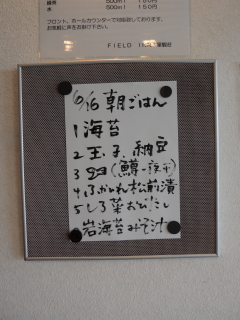 水 500ml 150円
フロント、ホールカウンターで付出設しております。
お気軽に声をお掛け下さい。
FIELD INN
6/16 朝ごはん
1 海苔
2 玉子、納豆
3 (鱒一夜干)
4 ふかひれ松前漬
5 しろ菜おひたし
岩海苔みそ汁